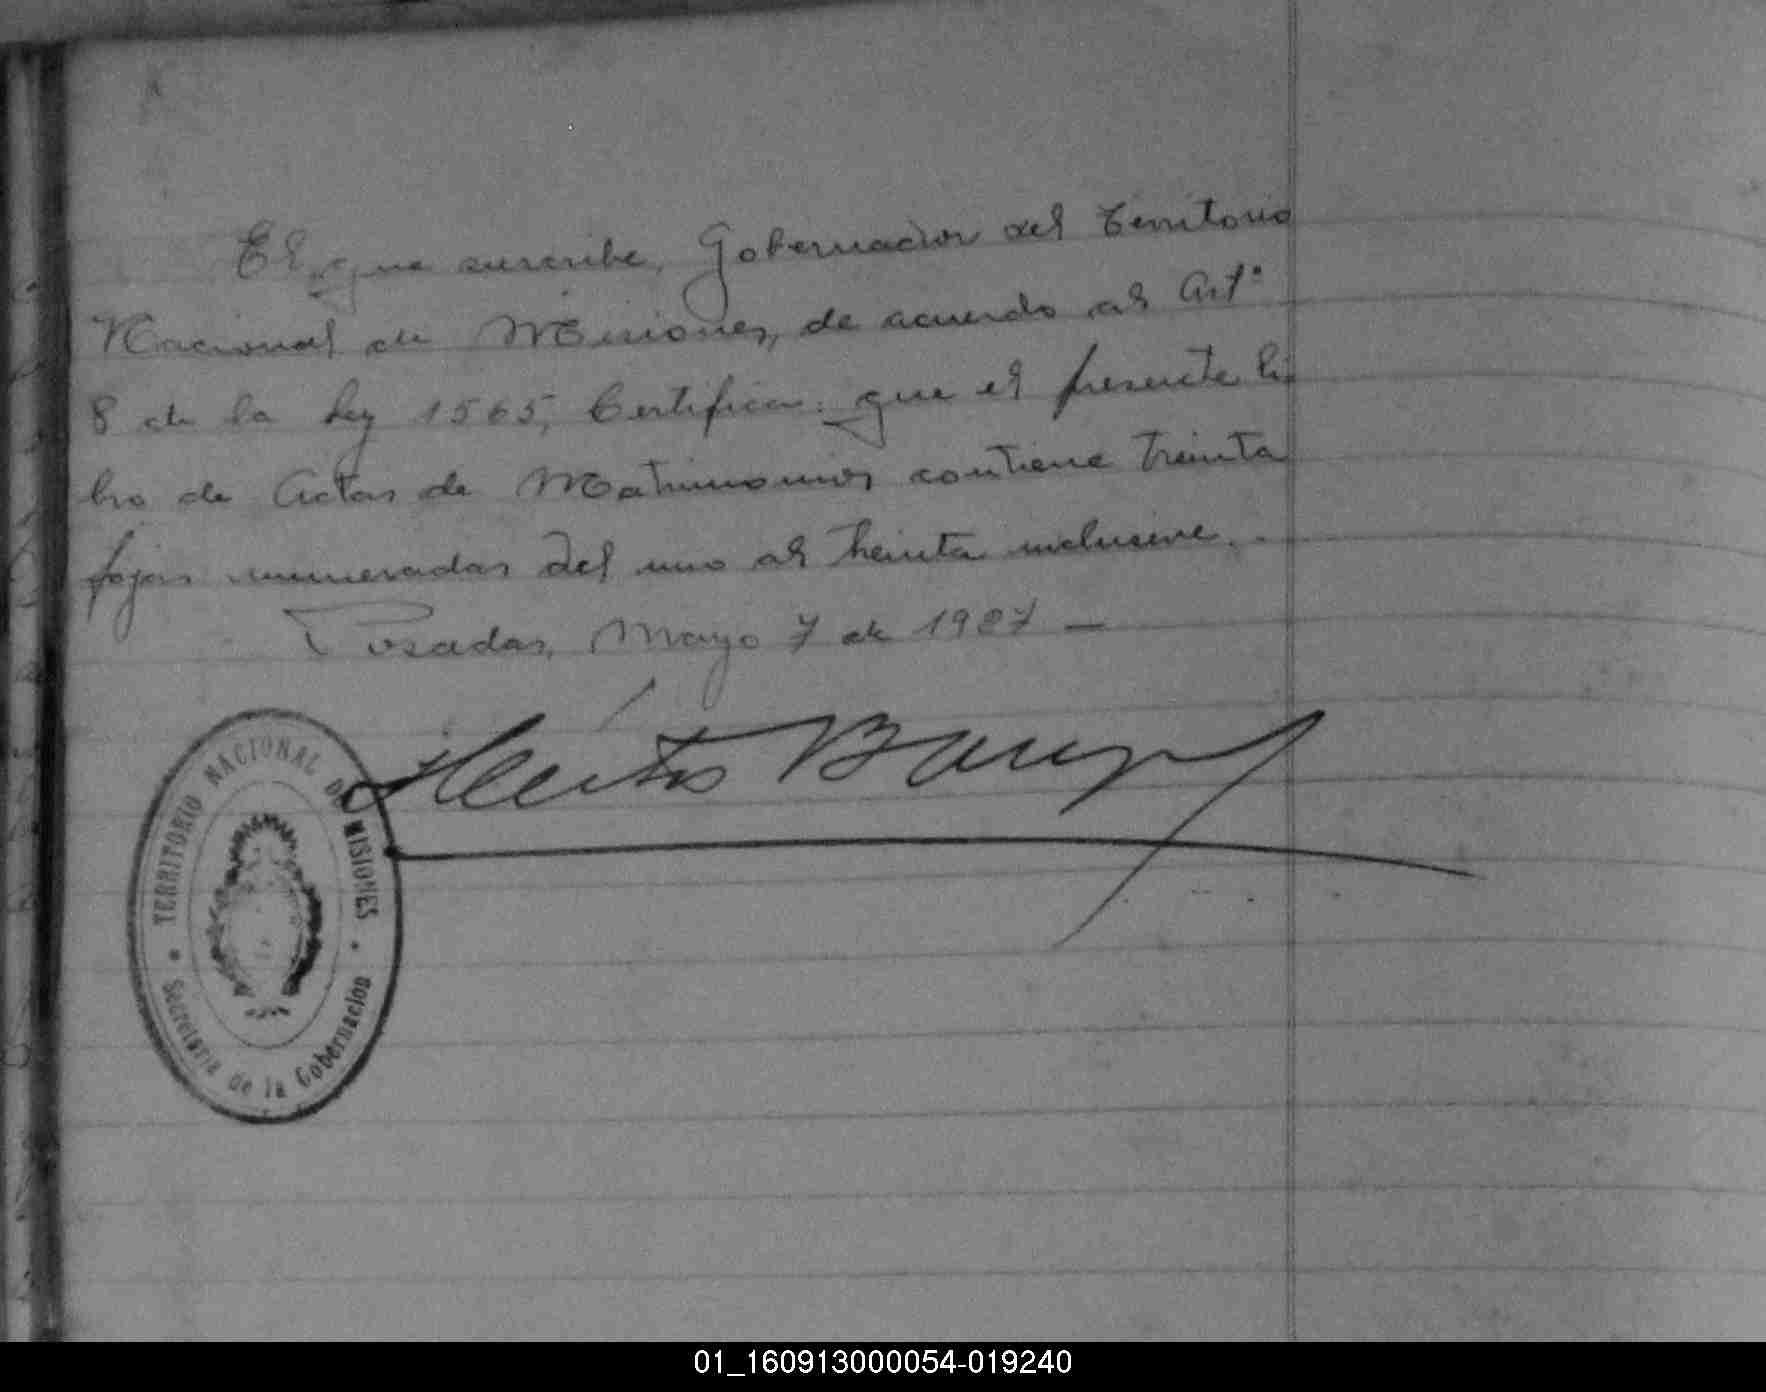 El que suscribe, Gobernador del Territorio
Nacional de Misiones, de acuerdo al Art°
8 de la ley 1565, Certifica: que el presente li
bro de Actas de Matrimonios contiene treinta
fojas numeradas del uno al treinta inclusive.
Posadas, Mayo 7 de 1927 —
Barreyro
TERRITORIO NACIONAL DE MISIONES
Secretaria de la Gobernacion
01_160913000054-019240